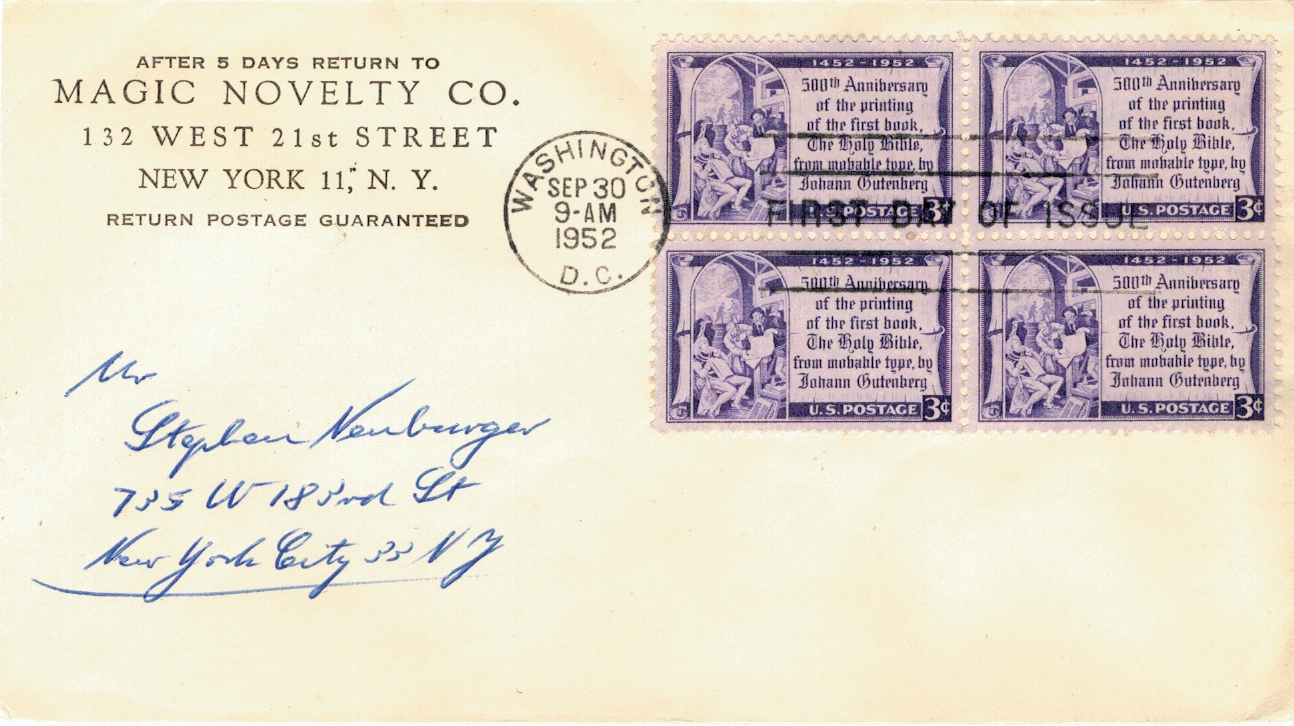 AFTER 5 DAYS RETURN TO
MAGIC NOVELTY CO.
132 WEST 21st STREET
NEW YORK 11, N. Y.
RETURN POSTAGE GUARANTEED
WASHINGTON
SEP 30
9-AM
1952
D.C.
FIRST DAY OF ISSUE
1452-1952
500th Anniversary
of the printing
of the first book,
The Holy Bible,
from movable type, by
Johann Gutenberg
U.S. POSTAGE 3¢
1452-1952
500th Anniversary
of the printing
of the first book,
The Holy Bible,
from movable type, by
Johann Gutenberg
U.S. POSTAGE 3¢
1452-1952
500th Anniversary
of the printing
of the first book,
The Holy Bible,
from movable type, by
Johann Gutenberg
U.S. POSTAGE 3¢
1452-1952
500th Anniversary
of the printing
of the first book,
The Holy Bible,
from movable type, by
Johann Gutenberg
U.S. POSTAGE 3¢
Mr
Stephen Neuburger
735 W 183rd St
New York City 33 N Y